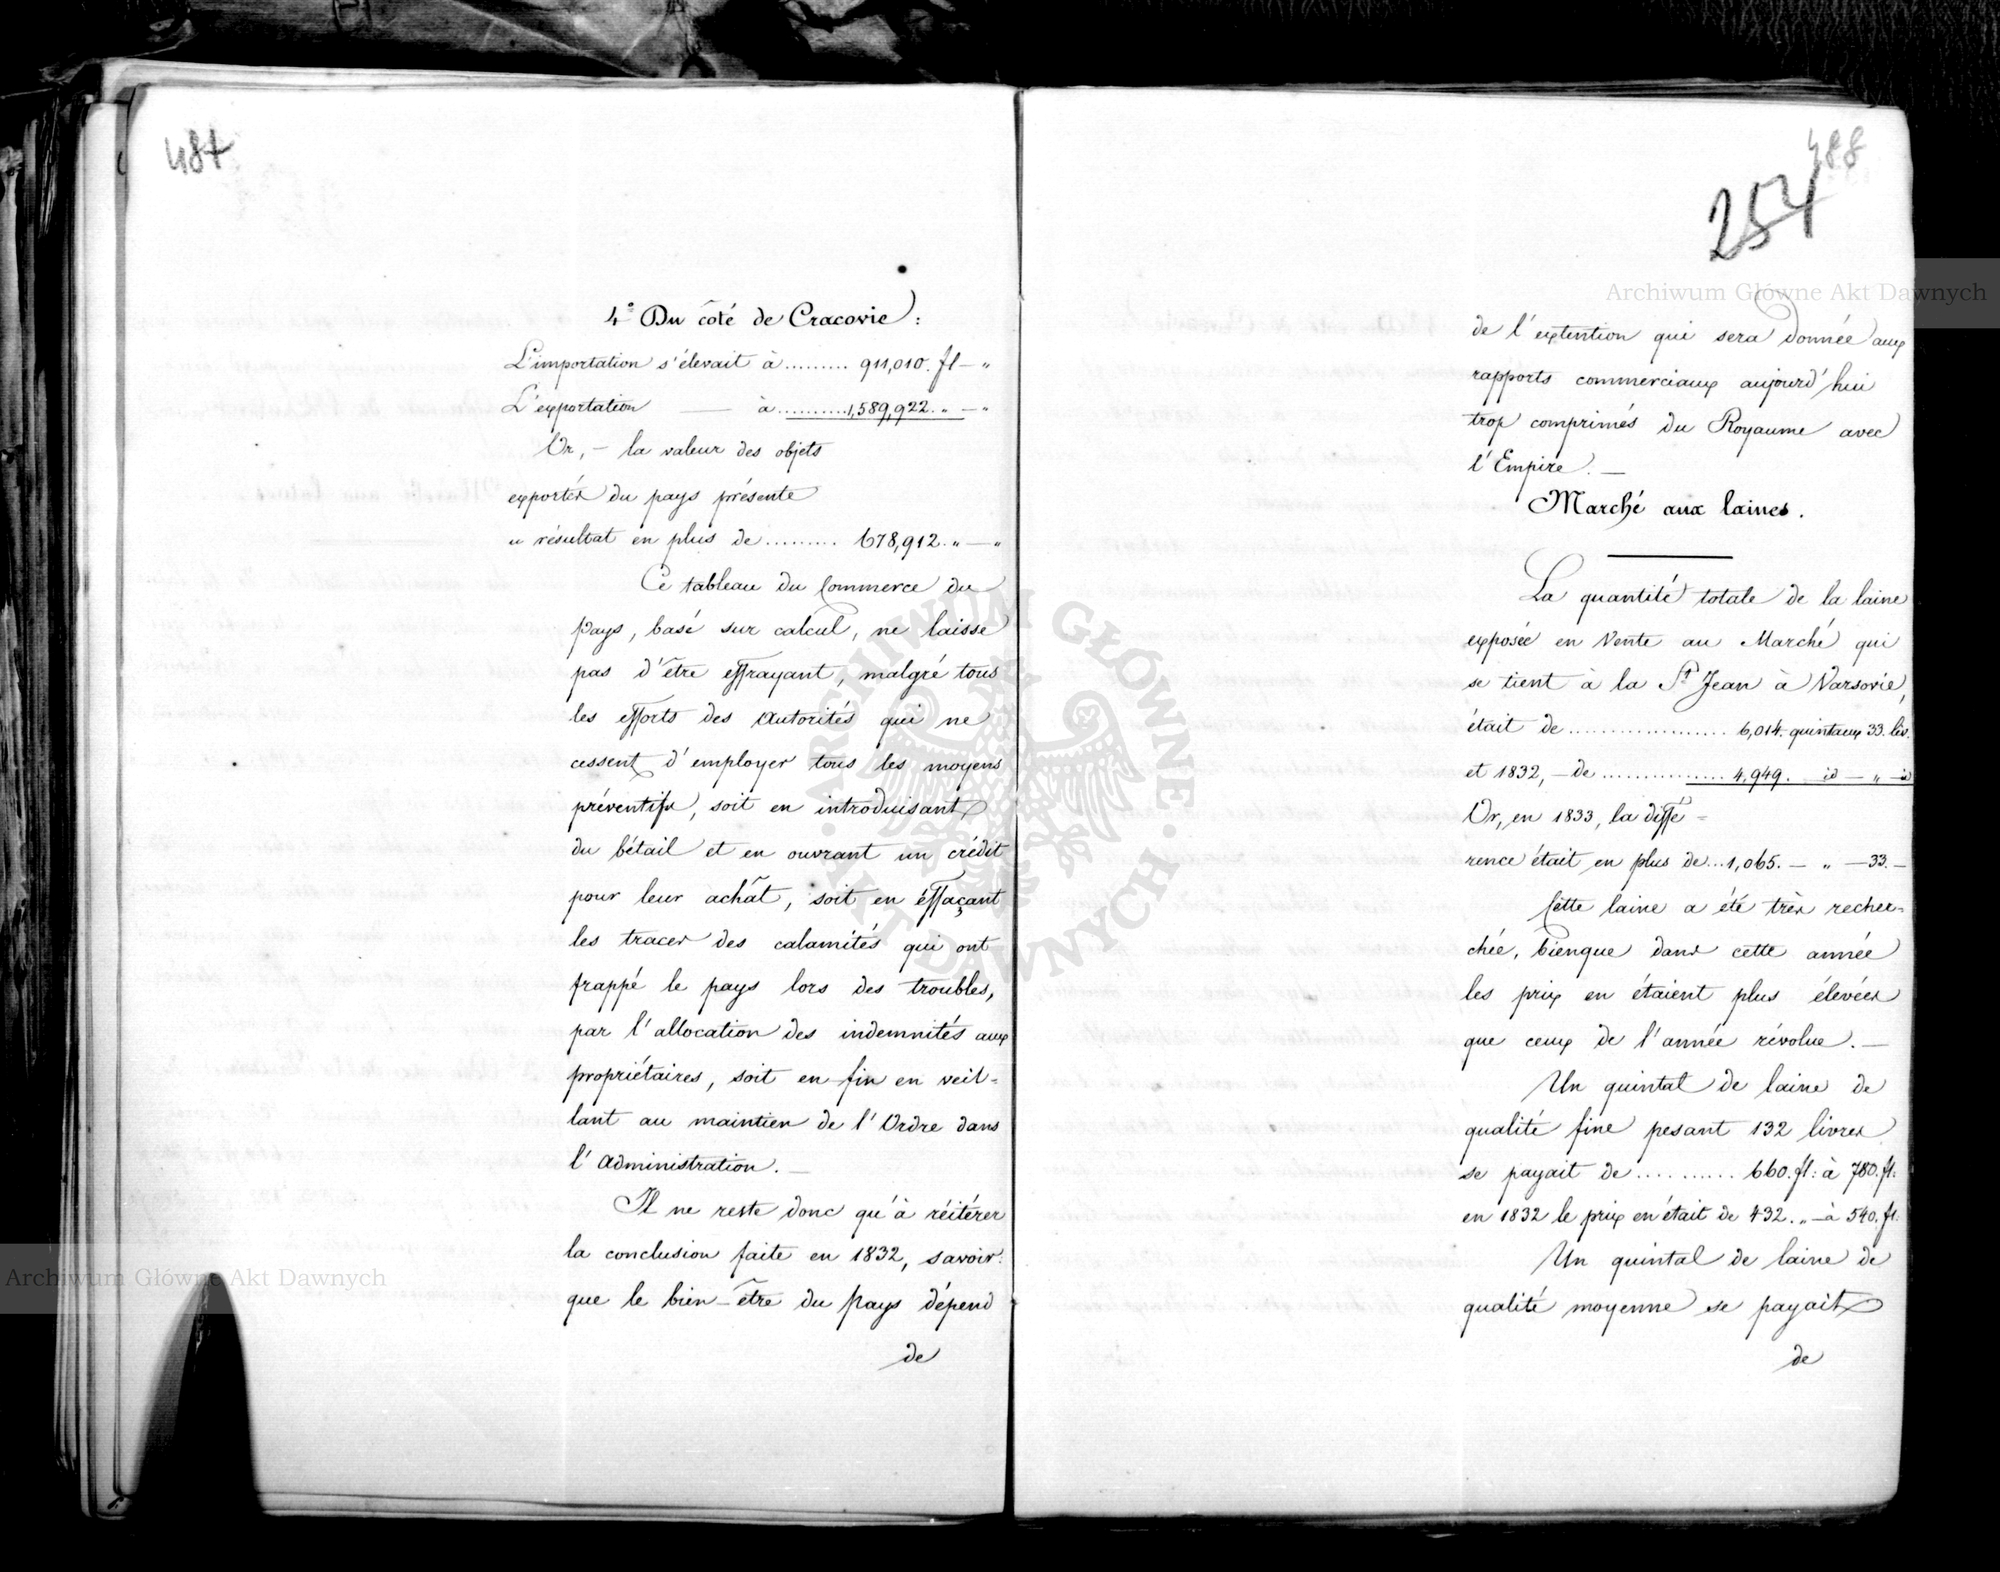 487
4° Du côté de Cracovie:
L'importation s'élevait à ......... 911,010. fl — "
L'exportation — à .......... 1,589,922. " — "
Or, — la valeur des objets
exportés du pays présente
" résultat en plus de ......... 678,912. " — "
Ce tableau du Commerce du
pays, basé sur calcul, ne laisse
pas d'être effrayant, malgré tous
les efforts des Autorités qui ne
cessent d'employer tous les moyens
préventifs, soit en introduisant
du bétail et en ouvrant un crédit
pour leur achât, soit en éffaçant
les traces des calamités qui ont
frappé le pays lors des troubles,
par l'allocation des indemnités aux
propriétaires, soit en fin en veil=
lant au maintien de l'Ordre dans
l'Administration. —
Il ne reste donc qu'à réitérer
la conclusion faite en 1832, savoir:
que le bien-être du pays dépend
de
488
254
de l'extention qui sera donnée aux
rapports commerciaux aujourd'hui
trop comprimés du Royaume avec
l'Empire. —
Marché aux laines.
La quantité totale de la laine
exposée en Vente au Marché qui
se tient à la St Jean à Varsovie,
était de ................... 6,014. quintaux 33. liv.
et 1832, — de ............... 4,949. id — " — id
Or, en 1833, la diffé=
rence était en plus de ... 1,065. — " — 33. —
Cette laine a été très recher=
chée, bienque dans cette année
les prix en étaient plus élevées
que ceux de l'année révolue. —
Un quintal de laine de
qualité fine pesant 132 livres
se payait de .......... 660. fl: à 780. fl:
en 1832 le prix en était de 432. " — à 540. fl:
Un quintal de laine de
qualité moyenne se payait
de
Archiwum Główne Akt Dawnych
Archiwum Główne Akt Dawnych
ARCHIWUM GŁÓWNE · AKT DAWNYCH ·